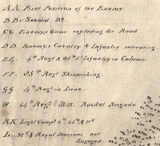 A.A. First Position of the Enemy
B.B. Second Do.
C.C. Enemy's Guns enfilading the Road
D.D. Enemy's Cavalry & Infantry retreating
E.E. 4th Regt & 85th Lt Infantry in Column
F.F. 85th Regt Skirmishing
G.G. 4th Regt in Line
H. 44th Regt
I.I. Rocket Brigade
K.K. Light Compys 4th 44th &
L. Royal Marines not
Engaged